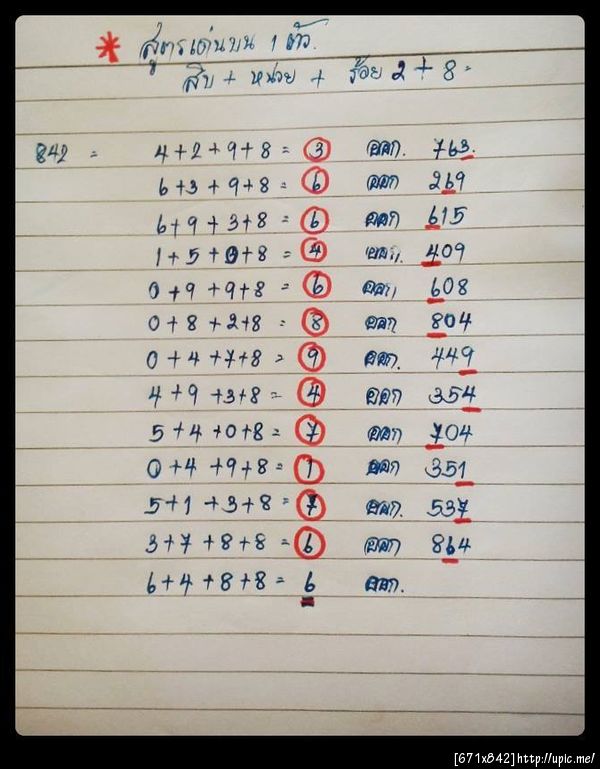 * สูตรเด่นบน 1 ตัว.
สิบ + หน่วย + ร้อย 2 + 8 =
842 = 4+2+9+8 = 3 ออก. 763
6+3+9+8 = 6 ออก 269
6+9+3+8 = 6 ออก 615
1+5+0+8 = 4 ออก 409
0+9+9+8 = 6 ออก 608
0+8+2+8 = 8 ออก 804
0+4+7+8 = 9 ออก. 449
4+9+3+8 = 4 ออก 354
5+4+0+8 = 7 ออก 704
0+4+9+8 = 1 ออก 351
5+1+3+8 = 7 ออก. 537
3+7+8+8 = 6 ออก 864
6+4+8+8 = 6 ออก.
[671x842]http://upic.me/